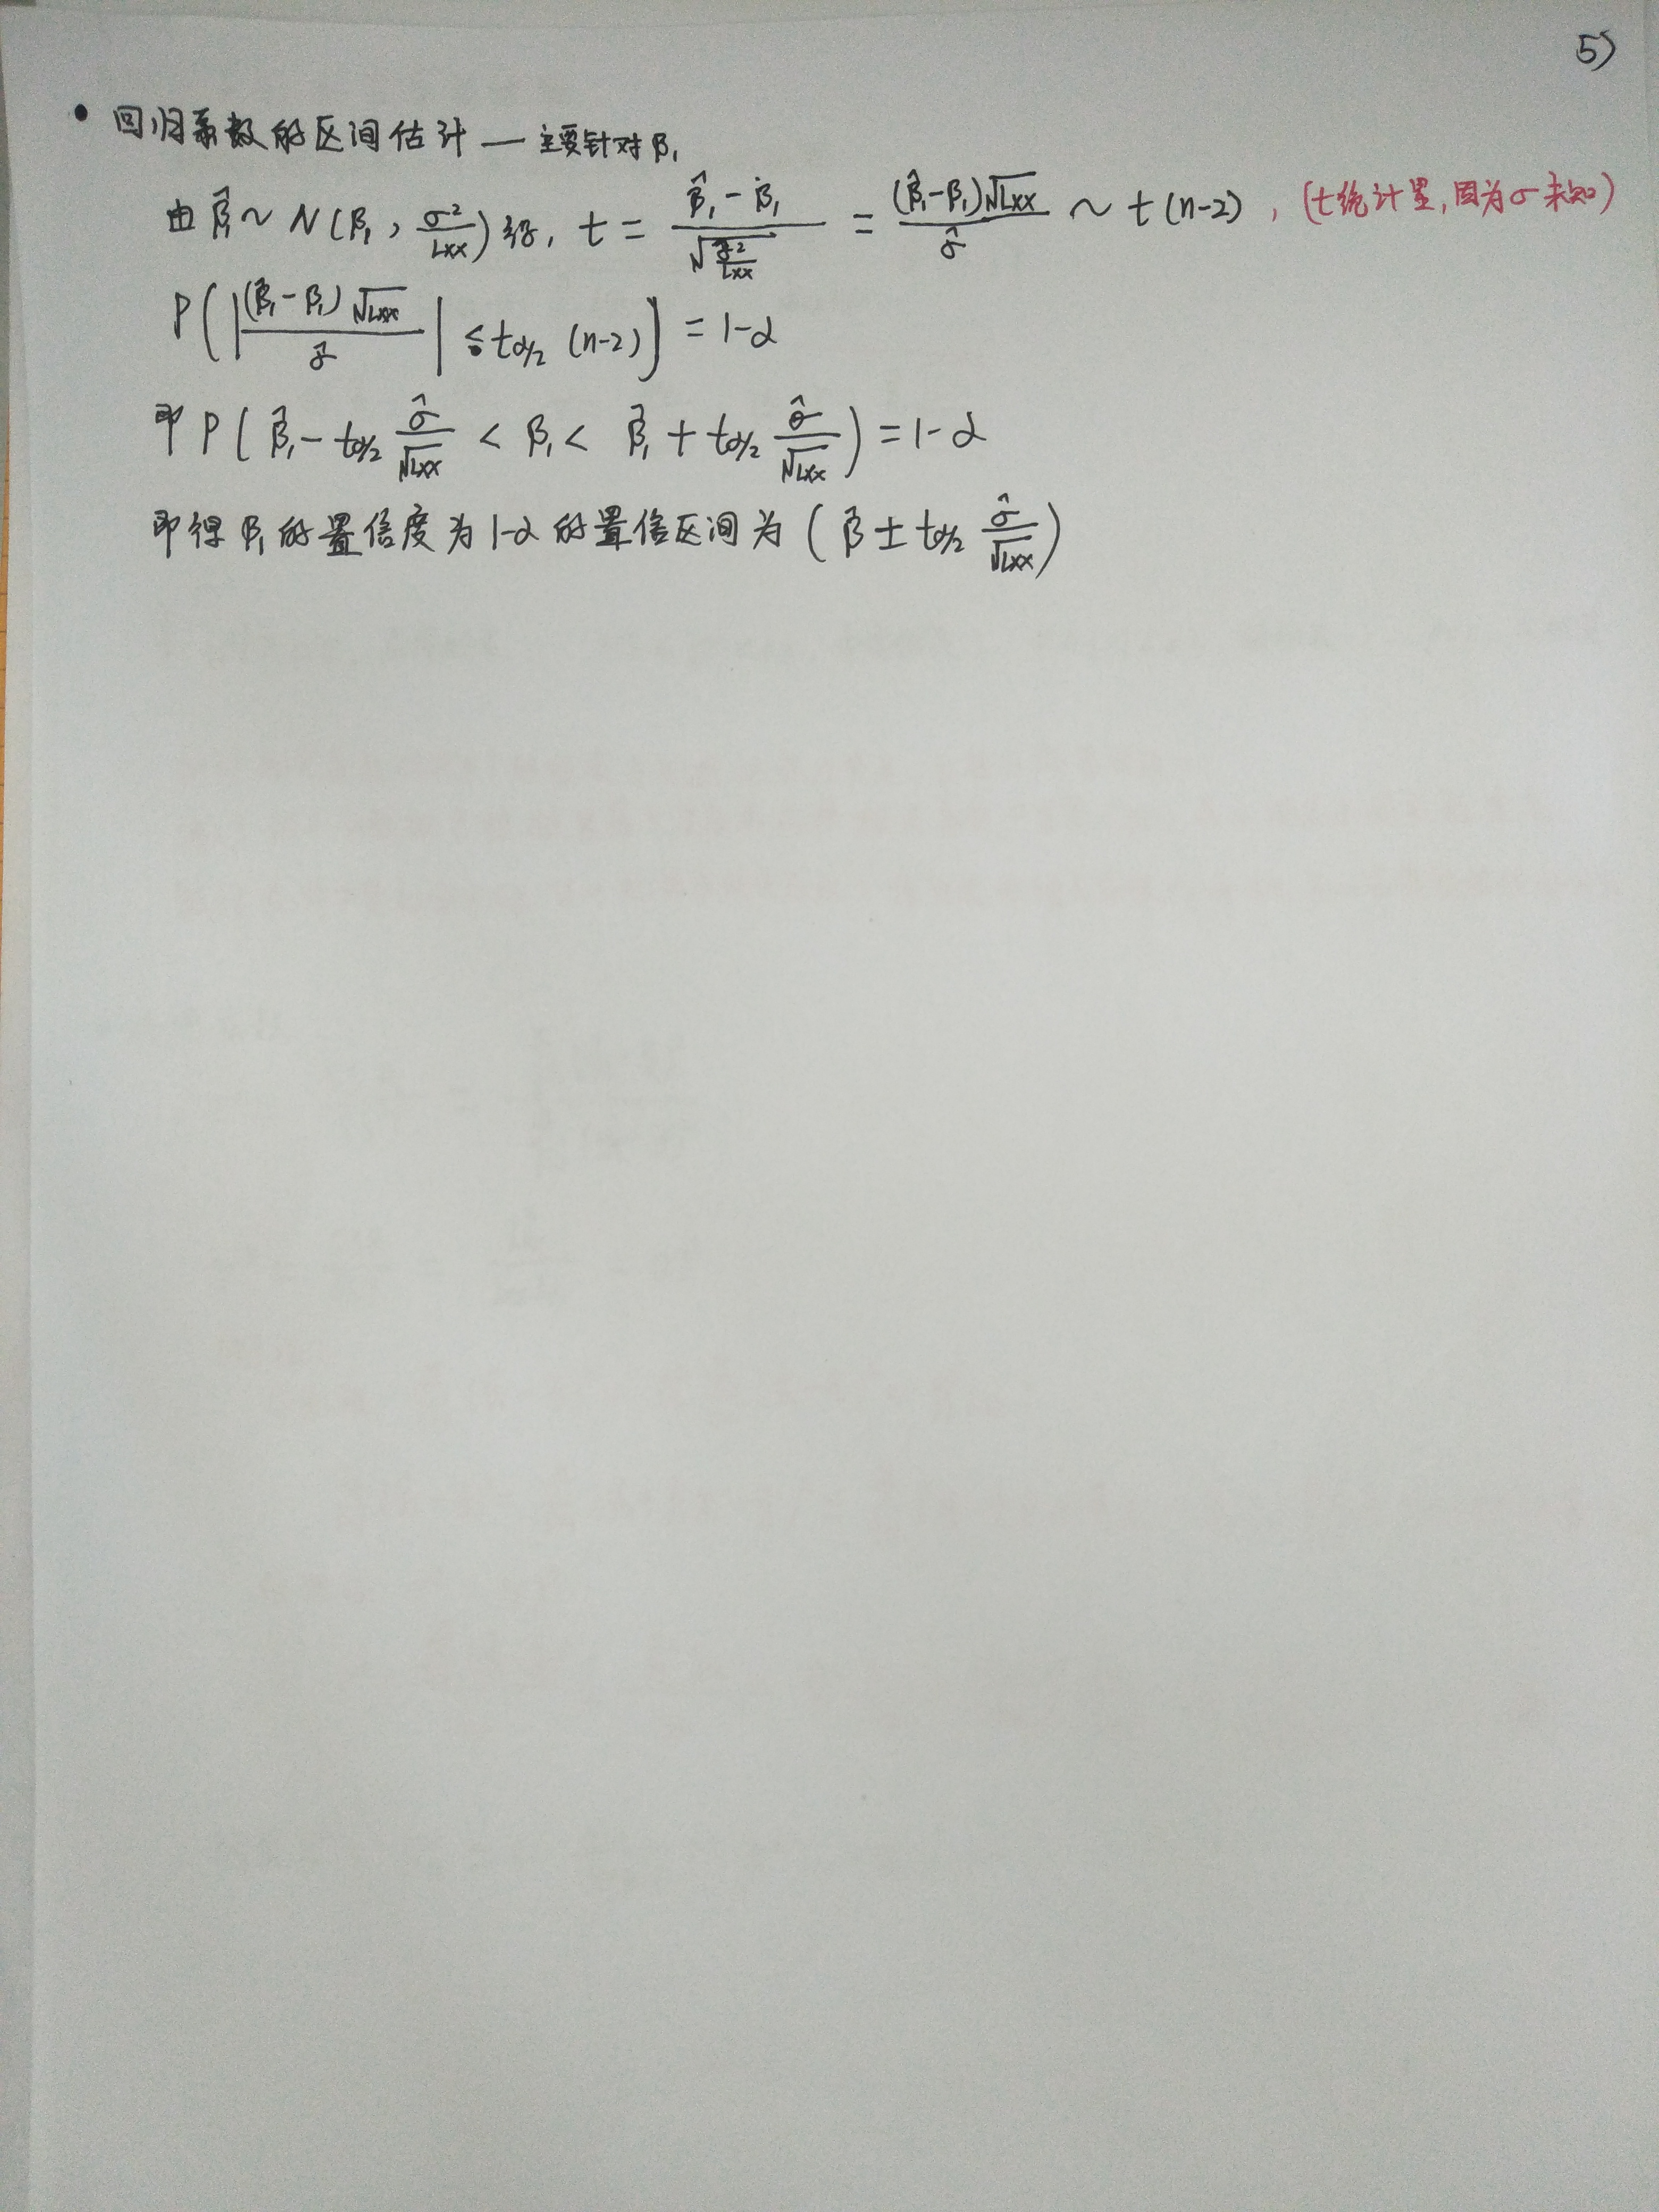 5)
• 回归系数的区间估计 — 主要针对 β₁
由 β̂₁ ~ N(β₁, σ²/Lxx) 得, t = (β̂₁ - β₁) / √(σ̂²/Lxx) = (β̂₁-β₁)√Lxx / σ̂ ~ t(n-2), (t统计量,因为σ未知)
P(|(β̂₁-β₁)√Lxx / σ̂| ≤ t_α/2 (n-2)) = 1-α
即 P(β̂₁ - t_α/2 σ̂/√Lxx < β₁ < β̂₁ + t_α/2 σ̂/√Lxx) = 1-α
即得 β₁ 的置信度为 1-α 的置信区间为 (β̂ ± t_α/2 σ̂/√Lxx)